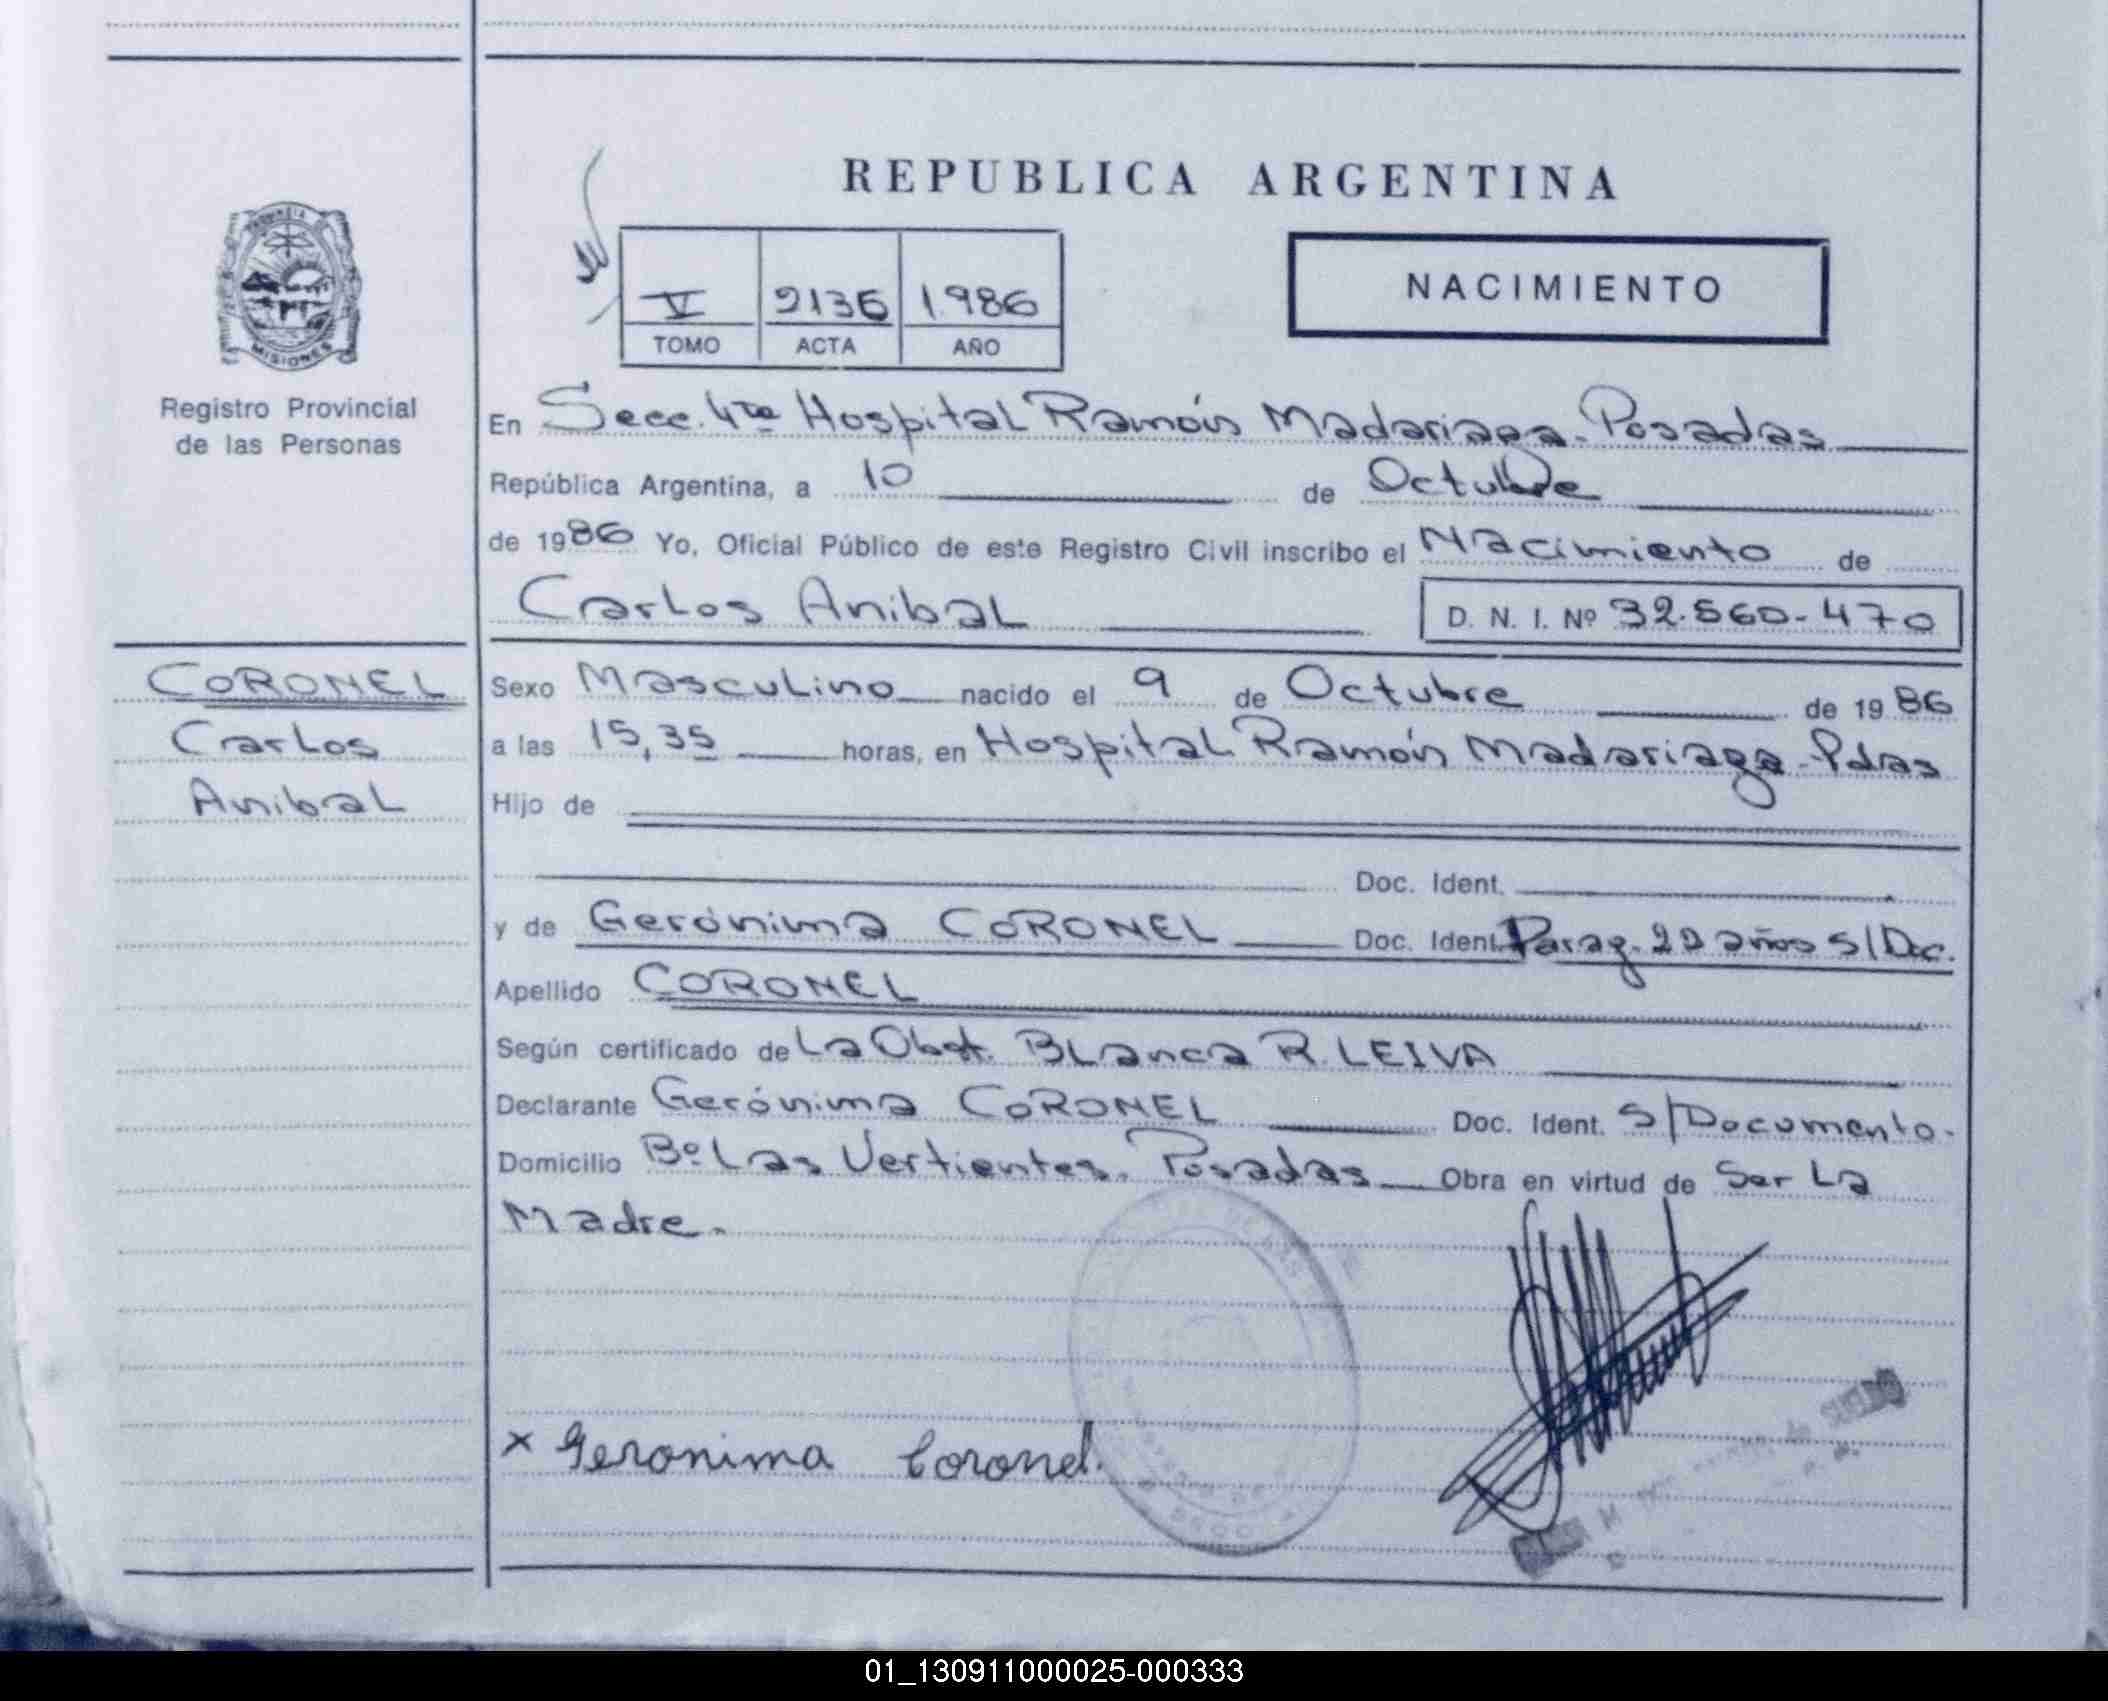 REPUBLICA ARGENTINA
PROVINCIA
MISIONES
Registro Provincial
de las Personas
V 2136 1.986
TOMO ACTA AÑO
NACIMIENTO
En Secc. 4ta Hospital Ramón Madariaga - Posadas
República Argentina, a 10 de Octubre
de 1986 Yo, Oficial Público de este Registro Civil inscribo el Nacimiento de
Carlos Anibal D. N. I. Nº 32.560-470
CORONEL
Carlos
Anibal
Sexo Masculino nacido el 9 de Octubre de 1986
a las 15,35 horas, en Hospital Ramón Madariaga - Pdas
Hijo de
Doc. Ident.
y de Gerónima CORONEL Doc. Ident. Parag. 22 años S/Doc.
Apellido CORONEL
Según certificado de La Obst. Blanca R. LEIVA
Declarante Gerónima CORONEL Doc. Ident. S/Documento.
Domicilio Bº Las Vertientes. Posadas Obra en virtud de Ser La
Madre.
x Geronima Coronel.
01_130911000025-000333